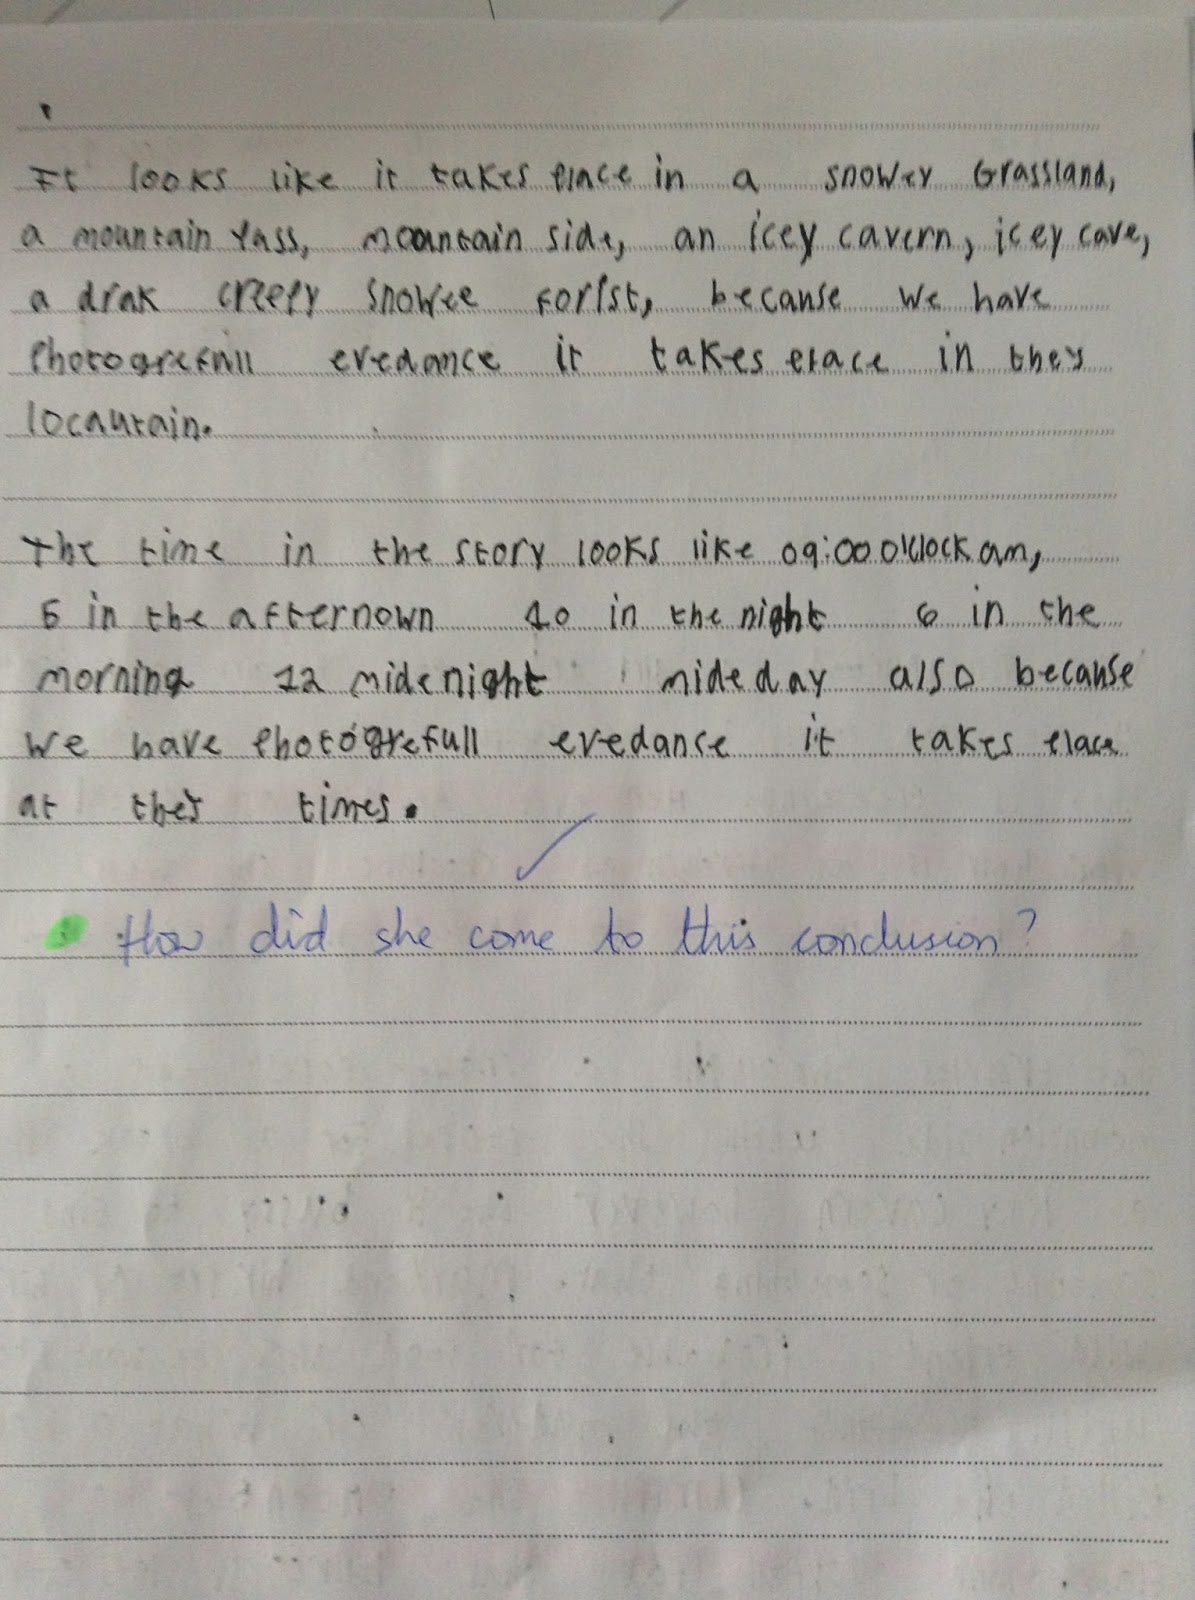 It looks like it takes place in a snowey Grassland,
a mountain Pass, mountain side, an icey cavern, icey cave,
a drak creepy snowee forist, because we have
Photogrefull evedance it takes place in thes
locautain.
the time in the story looks like 09:00 o'clock am,
5 in the afternown 10 in the night 6 in the
morning 12 midenight mideday also because
we have photogrefull evedance it takes place
at thes times.
How did she come to this conclusion?